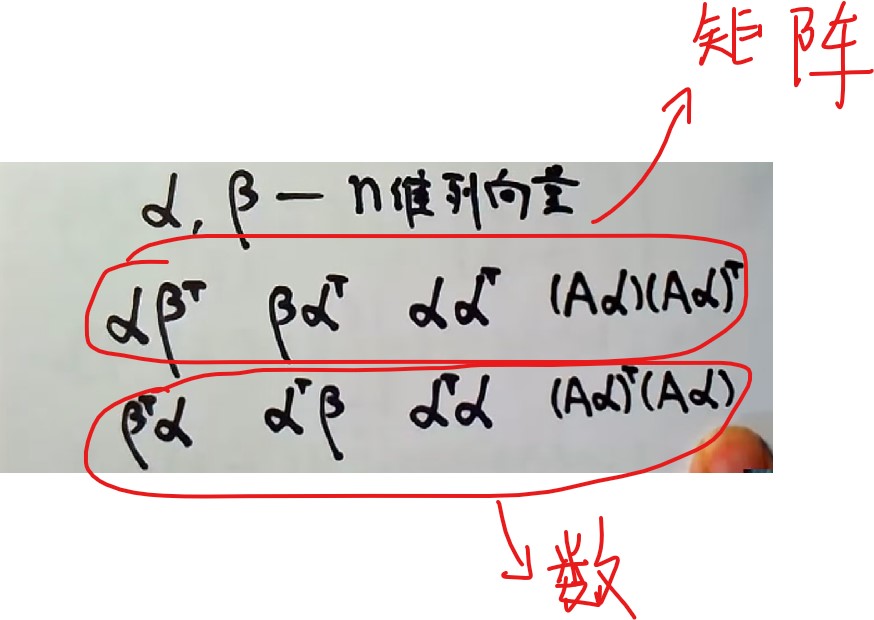 矩阵
α, β — n维列向量
αβᵀ βαᵀ ααᵀ (Aα)(Aα)ᵀ
βᵀα αᵀβ αᵀα (Aα)ᵀ(Aα)
数